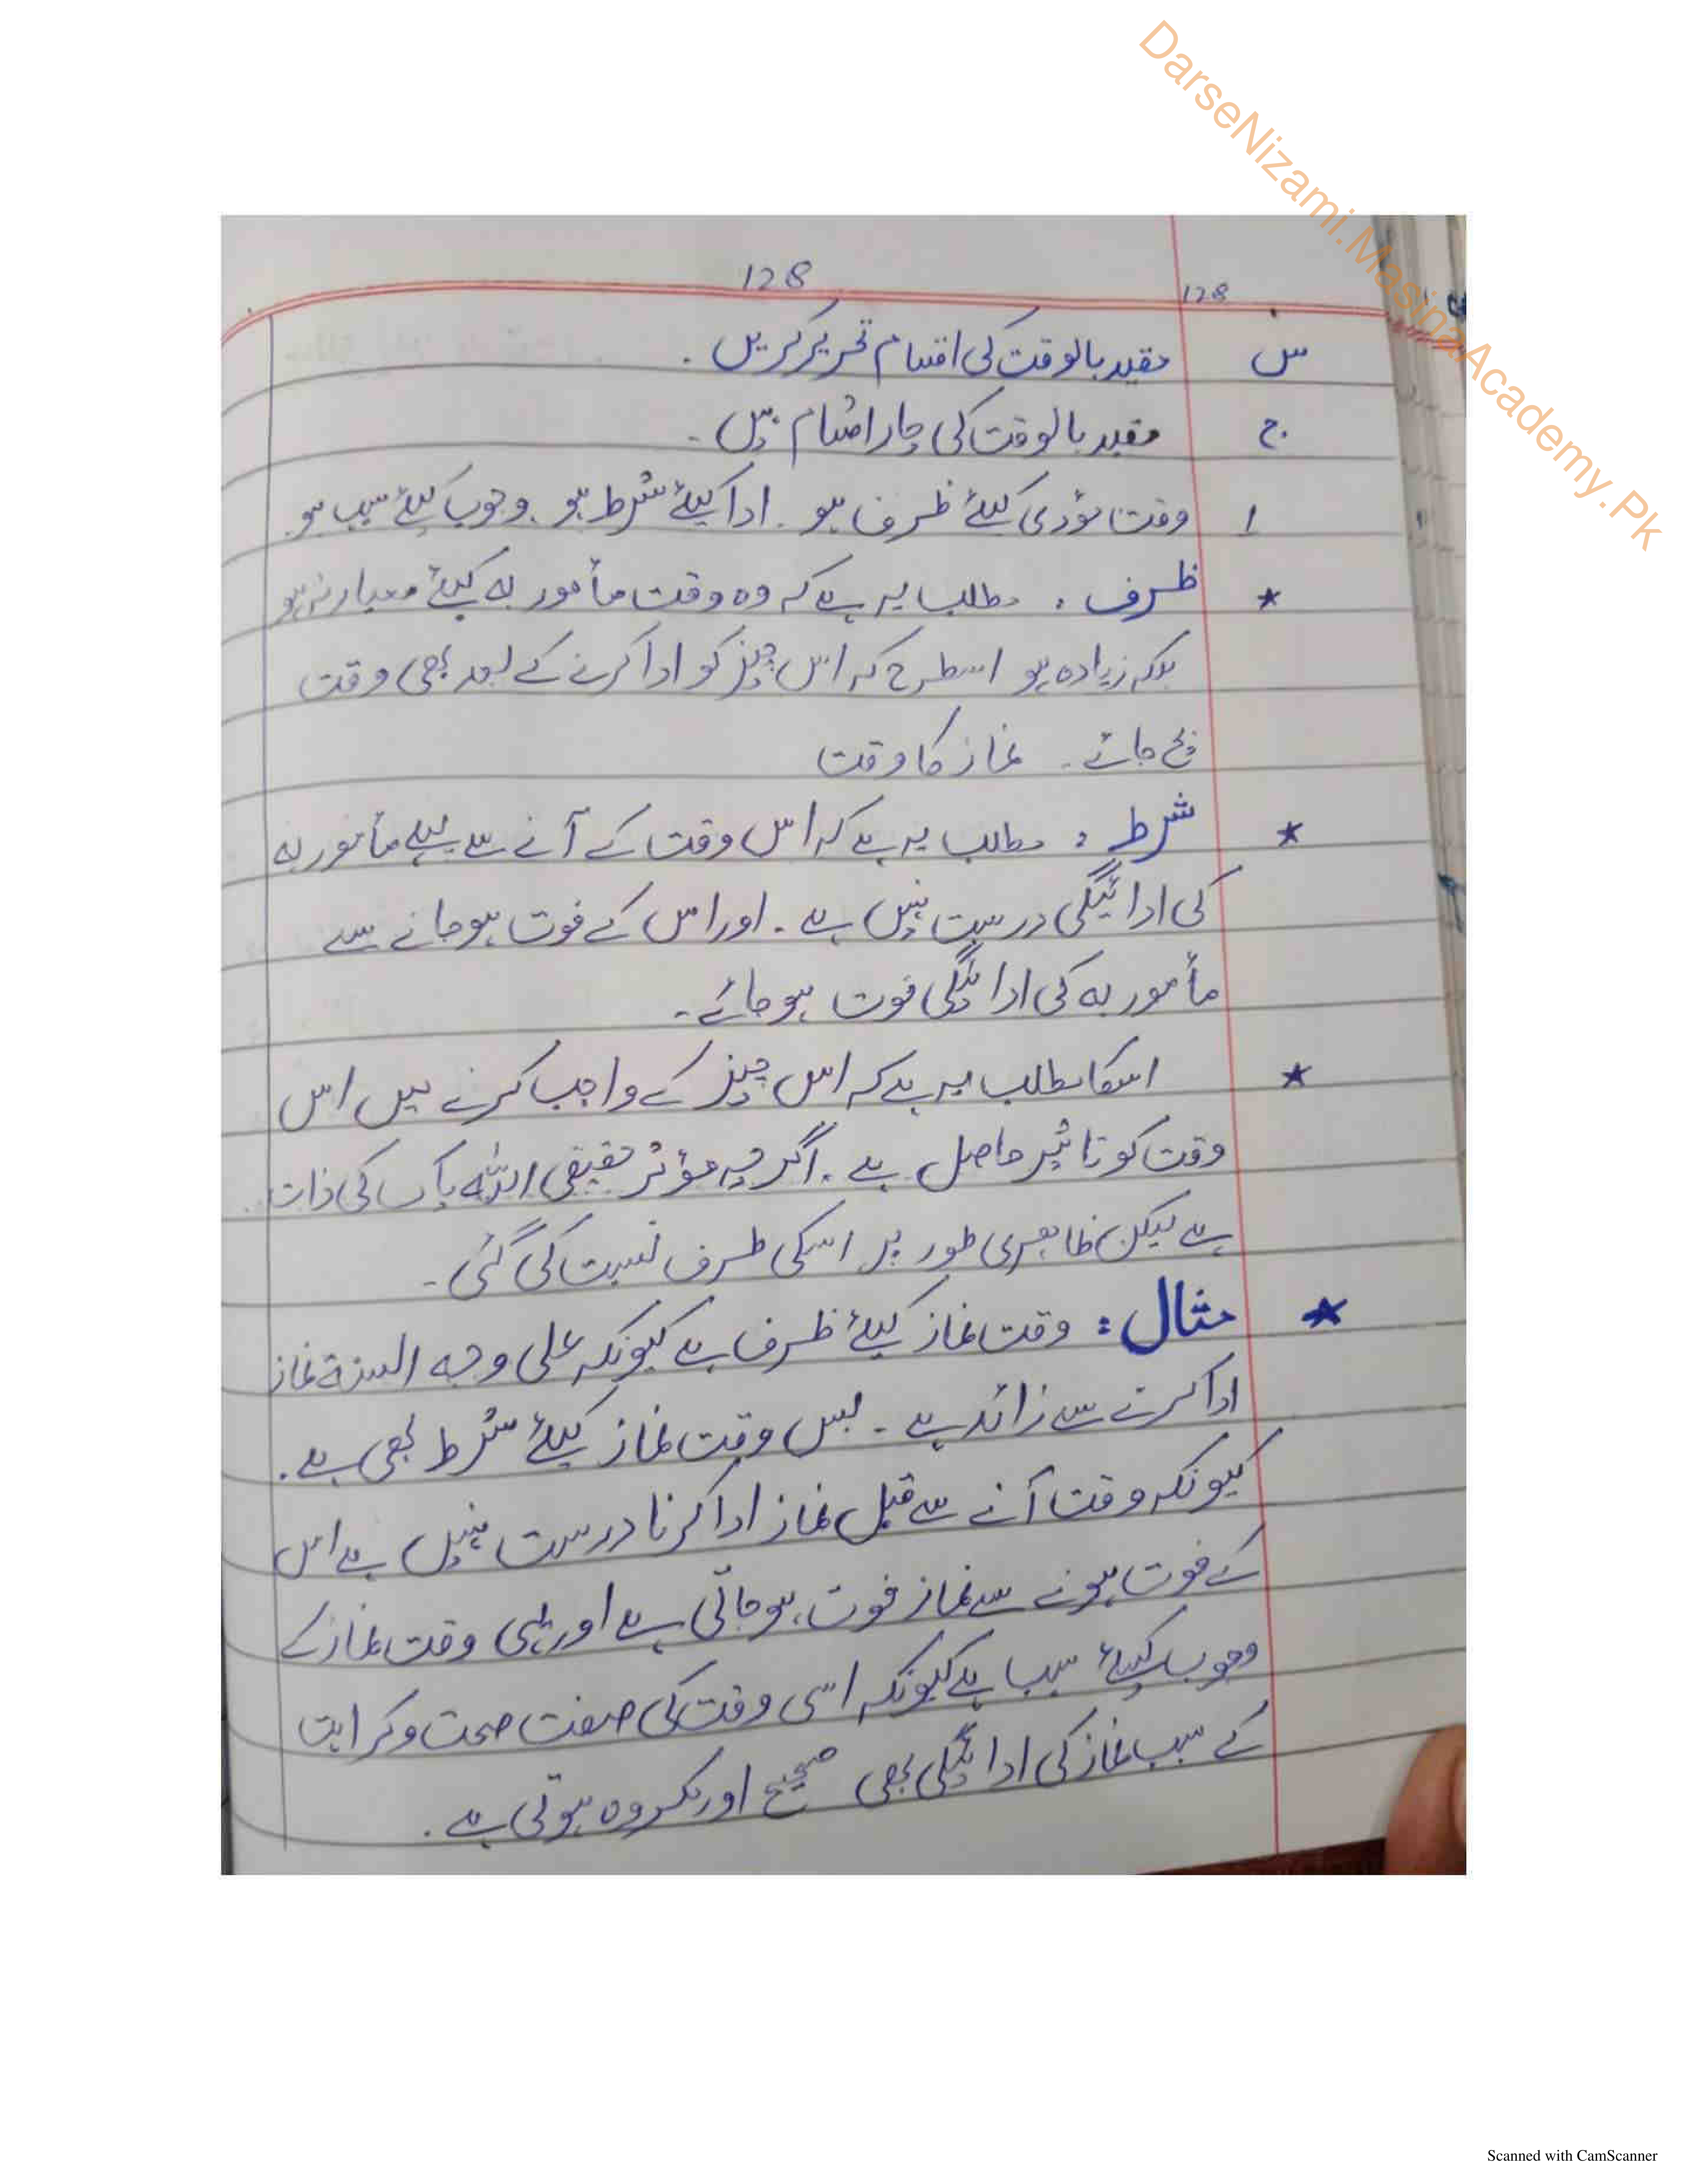 DarseNizami.MasinaAcademy.Pk
128
128
س مقید بالوقت کی اقسام تحریر کریں ۔
ج۔ مقید بالوقت کی چار اقسام ہیں ۔
1 وقت مؤدی کیلئے ظرف ہو ۔ ادا کیلئے شرط ہو ۔ وجوب کیلئے سبب ہو ۔
★ ظرف : مطلب یہ ہے کہ وہ وقت مأمور بہ کیلئے معیار نہ ہو
بلکہ زیادہ ہو اسطرح کہ اس چیز کو ادا کرنے کے بعد بھی وقت
بچ جائے ۔ نماز کا وقت
★ شرط : مطلب یہ ہے کہ اس وقت کے آنے سے پہلے مأمور بہ
کی ادائیگی درست نہیں ہے ۔ اور اس کے فوت ہو جانے سے
مأمور بہ کی ادائیگی فوت ہو جائے ۔
★ اسکا مطلب یہ ہے کہ اس چیز کے واجب کرنے میں اس
وقت کو تاثیر حاصل ہے ۔ اگرچہ مؤثر حقیقی اللہ پاک کی ذات
ہے لیکن ظاہری طور پر اسکی طرف نسبت کی گئی ۔
★ مثال : وقت نماز کیلئے ظرف ہے کیونکہ علی وجہ السنۃ نماز
ادا کرنے سے زائد ہے ۔ بس وقت نماز کیلئے شرط بھی ہے ۔
کیونکہ وقت آنے سے قبل نماز ادا کرنا درست نہیں ہے اس
کے فوت ہونے سے نماز فوت ہو جاتی ہے اور یہی وقت نماز کے
وجوب کیلئے سبب ہے کیونکہ اسی وقت کی صفت صحت و کراہت
کے سبب نماز کی ادائیگی بھی صحیح اور مکروہ ہوتی ہے ۔
Scanned with CamScanner